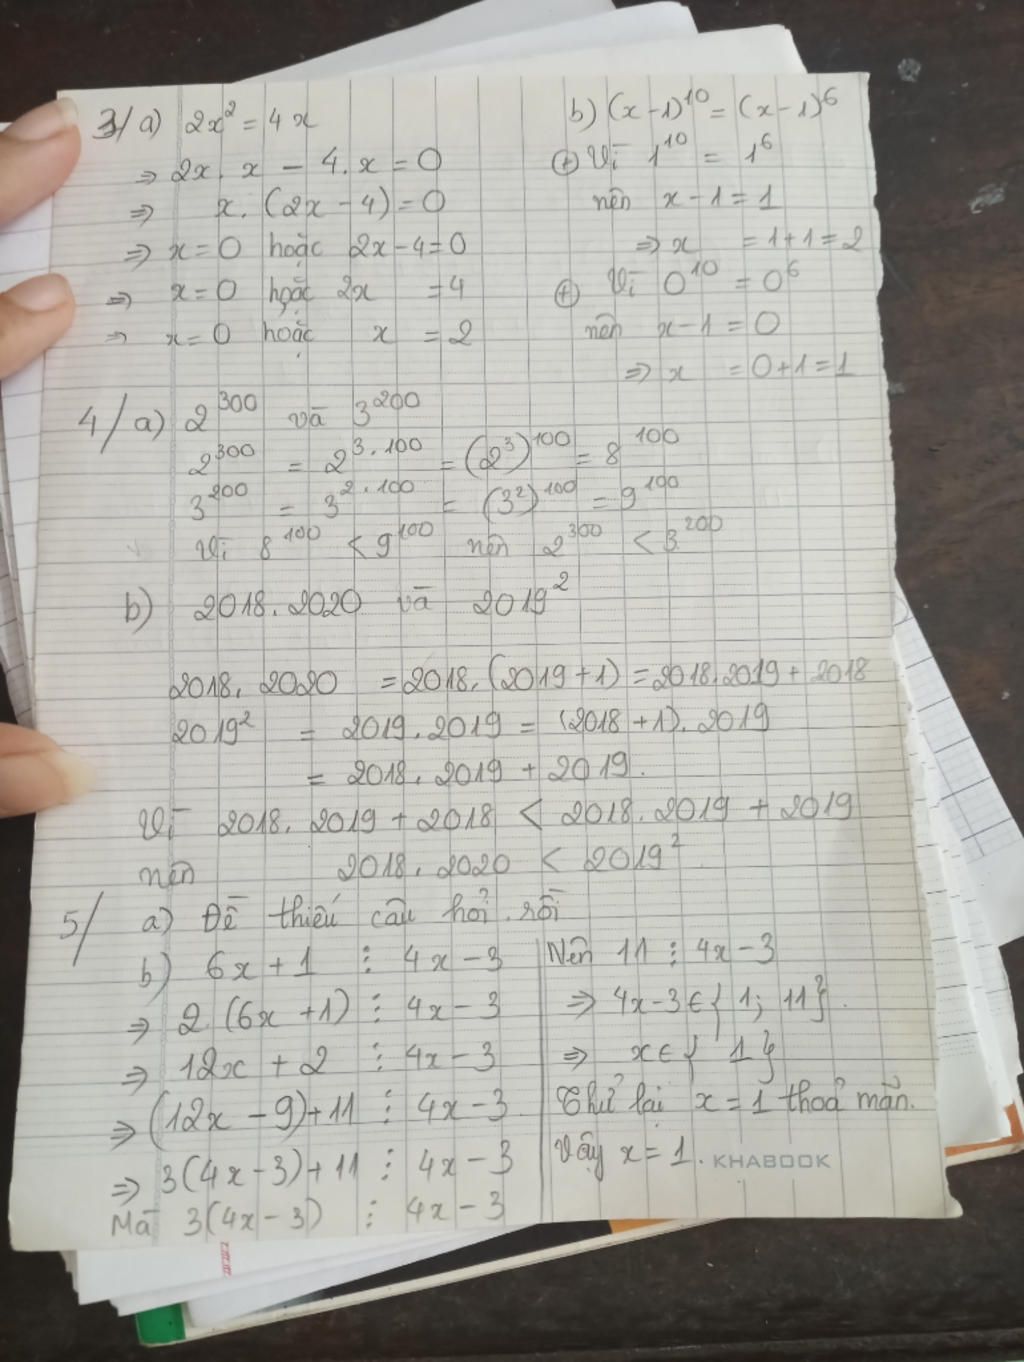 3/ a) 2x² = 4x
⇒ 2x. x - 4. x = 0
⇒ x. (2x - 4) = 0
⇒ x = 0 hoặc 2x - 4 = 0
⇒ x = 0 hoặc 2x = 4
⇒ x = 0 hoặc x = 2
b) (x - 1)¹⁰ = (x - 1)⁶
⊕ Vì 1¹⁰ = 1⁶
nên x - 1 = 1
⇒ x = 1 + 1 = 2
⊕ Vì 0¹⁰ = 0⁶
nên x - 1 = 0
⇒ x = 0 + 1 = 1
4/ a) 2³⁰⁰ và 3²⁰⁰
2³⁰⁰ = 2³·¹⁰⁰ = (2³)¹⁰⁰ = 8¹⁰⁰
3²⁰⁰ = 3²·¹⁰⁰ = (3²)¹⁰⁰ = 9¹⁰⁰
Vì 8¹⁰⁰ < 9¹⁰⁰ nên 2³⁰⁰ < 3²⁰⁰
b) 2018. 2020 và 2019²
2018. 2020 = 2018. (2019 + 1) = 2018. 2019 + 2018
2019² = 2019. 2019 = (2018 + 1). 2019
= 2018. 2019 + 2019.
Vì 2018. 2019 + 2018 < 2018. 2019 + 2019
nên 2018. 2020 < 2019²
5/ a) Đề thiếu câu hỏi rồi
b) 6x + 1 ⋮ 4x - 3
⇒ 2 (6x + 1) ⋮ 4x - 3
⇒ 12x + 2 ⋮ 4x - 3
⇒ (12x - 9) + 11 ⋮ 4x - 3
⇒ 3(4x - 3) + 11 ⋮ 4x - 3
Mà 3(4x - 3) ⋮ 4x - 3
Nên 11 ⋮ 4x - 3
⇒ 4x - 3 ∈ { 1; 11}.
⇒ x ∈ { 1 }
Thử lại x = 1 thoả mãn.
Vậy x = 1.
KHABOOK